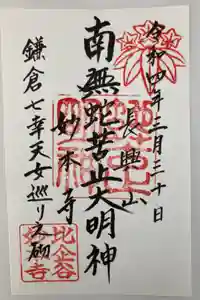 令和四年三月二十日
長興山
南無蛇苦止大明神
妙本寺
鎌倉七幸天女巡り之砌
比企谷
妙本寺